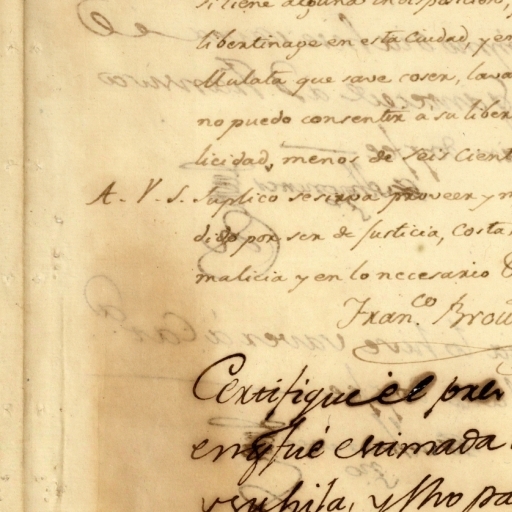 si tiene alguna indisposicion,
libertinage en esta Ciudad y en
Mulata que save coser, lava
no puedo consentir a su liber
licidad, menos de seis cient
A. V. S. Suplico se sirva proveer y m
dido por ser de Justicia, Costa
malicia y en lo necesario
Fran.co Brou
Certifique el pre
en q fué estimada
y su hija, y fho pa